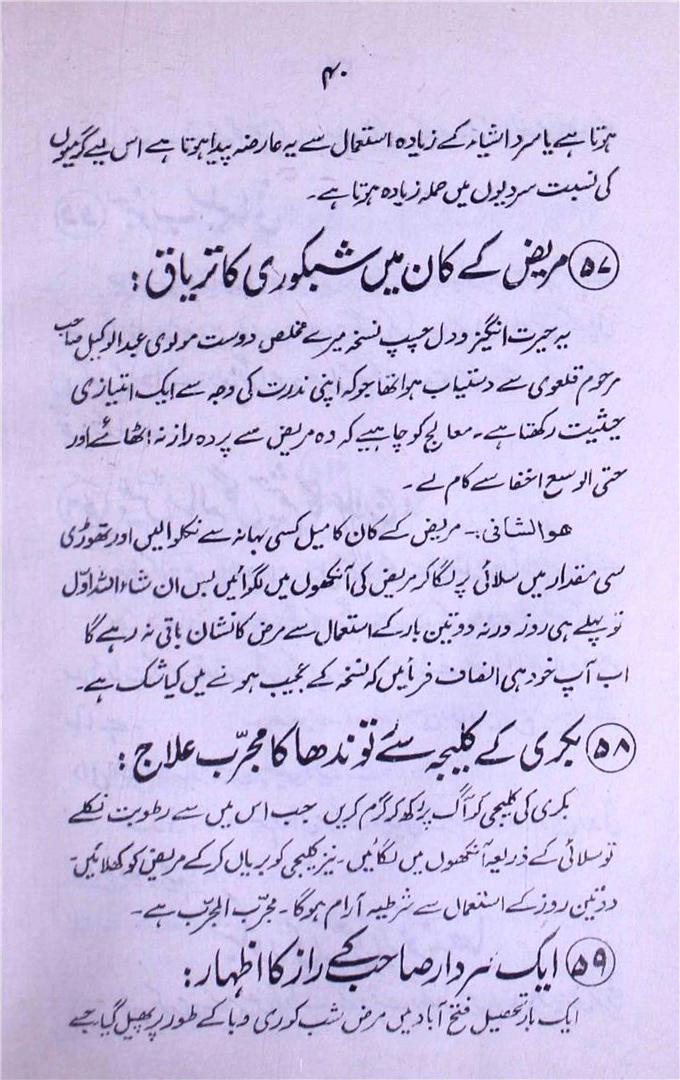 ۴۰
ہوتا ہے یا سرد اشیاء کے زیادہ استعمال سے یہ عارضہ پیدا ہوتا ہے اس لیے گرمیوں
کی نسبت سردیوں میں حملہ زیادہ ہوتا ہے۔
۵۷ مریض کے کان میں شبکوری کا تریاق :
یہ حیرت انگیز و دل چسپ نسخہ میرے مخلص دوست مولوی عبدالوکیل صاحب
مرحوم قلعوی سے دستیاب ہوا تھا جو کہ اپنی ندرت کی وجہ سے ایک امتیازی
حیثیت رکھتا ہے۔ معالج کو چاہیے کہ وہ مریض سے پردہ راز نہ اٹھائے اور
حتی الوسیع اخفا سے کام لے۔
ھوالشافی :۔ مریض کے کان کا میل کسی بہانہ سے نکلوالیں اور تھوڑی
سی مقدار میں سلائی پر لگا کر مریض کی آنکھوں میں لگوائیں بس ان شاء اللہ اوّل
تو پہلے ہی روز ورنہ دو تین بار کے استعمال سے مرض کا نشان باقی نہ رہے گا
اب آپ خود ہی انصاف فرمائیں کہ نسخہ کے عجیب ہونے میں کیا شک ہے۔
۵۸ بکری کے کلیجہ سے توندھا کا مجرّب علاج :
بکری کی کلیجی کو آگ پر رکھ کر گرم کریں جب اس میں سے رطوبت نکلے
تو سلائی کے ذریعہ آنکھوں میں لگائیں۔ نیز کلیجی کو بریاں کر کے مریض کو کھلائیں۔
دو تین روز کے استعمال سے شرطیہ آرام ہوگا۔ مجرّب المجرّب ہے۔
۵۹ ایک سردار صاحب کے راز کا اظہار :
ایک بار تحصیل فتح آباد میں مرض شب کوری وبا کے طور پر پھیل گیا جسے